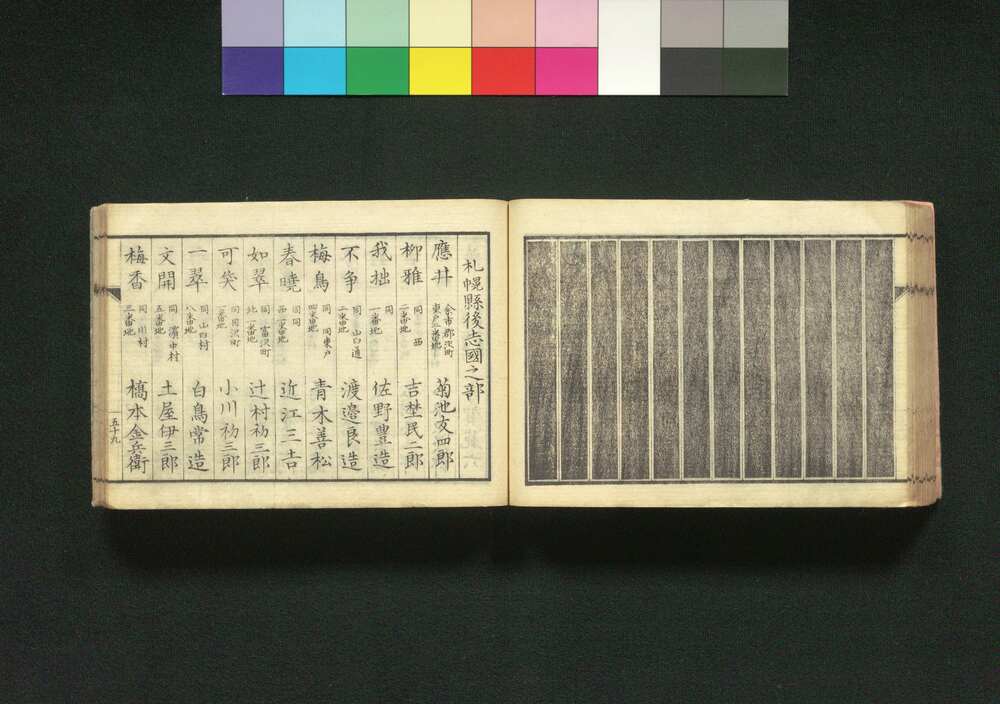 札幌縣後志國之部
應井 余市郡沢町 東戸二番地 菊池友四郎
柳雅 同 西 二番地 吉埜民二郎
我拙 同 一番地 佐野豊造
不争 同 山臼通 二番地 渡邉良造
梅鳥 同 同東戸 四番地 青木善松
春曉 同同 西二番地 近江三吉
如翠 同 富沢町 北一番地 辻村初三郎
可笑 同同沢町 番地 小川初三郎
一翠 同 山田村 八番地 白鳥常造
文開 同 濱中村 五番地 土屋伊三郎
梅香 同 川村 三番地 橋本金兵衛
五十九